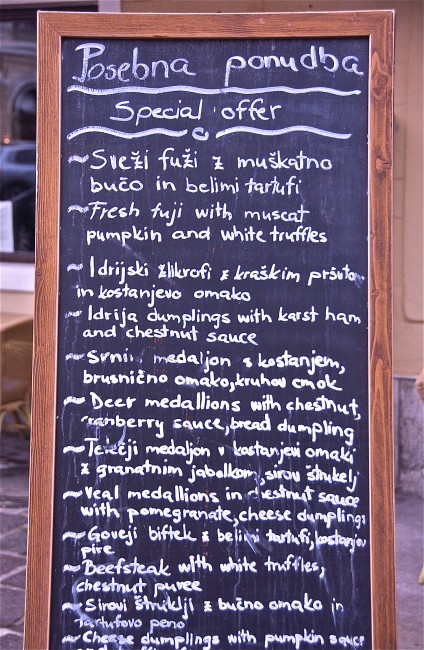 Posebna ponudba
Special offer
~Sveži fuži z muškatno
bučo in belimi tartufi
~Fresh fuji with muscat
pumpkin and white truffles
~Idrijski žlikrofi z kraškim pršutom
in kostanjevo omako
~Idrija dumplings with karst ham
and chestnut sauce
~Srnin medaljon s kostanjem,
brusnično omako, kruhov cmok
~Deer medallions with chestnut,
cranberry sauce, bread dumpling
~Telečji medaljon v kostanjevi omaki
z granatnim jabolkom, sirovi štruklji
~Veal medallions in chestnut sauce
with pomegranate, cheese dumplings
~Goveji biftek z belimi tartufi, kostanjev
pire
~Beefsteak with white truffles,
chestnut puree
~Sirovi štruklji z bučno omako in
tartufovo peno
~Cheese dumplings with pumpkin sauce